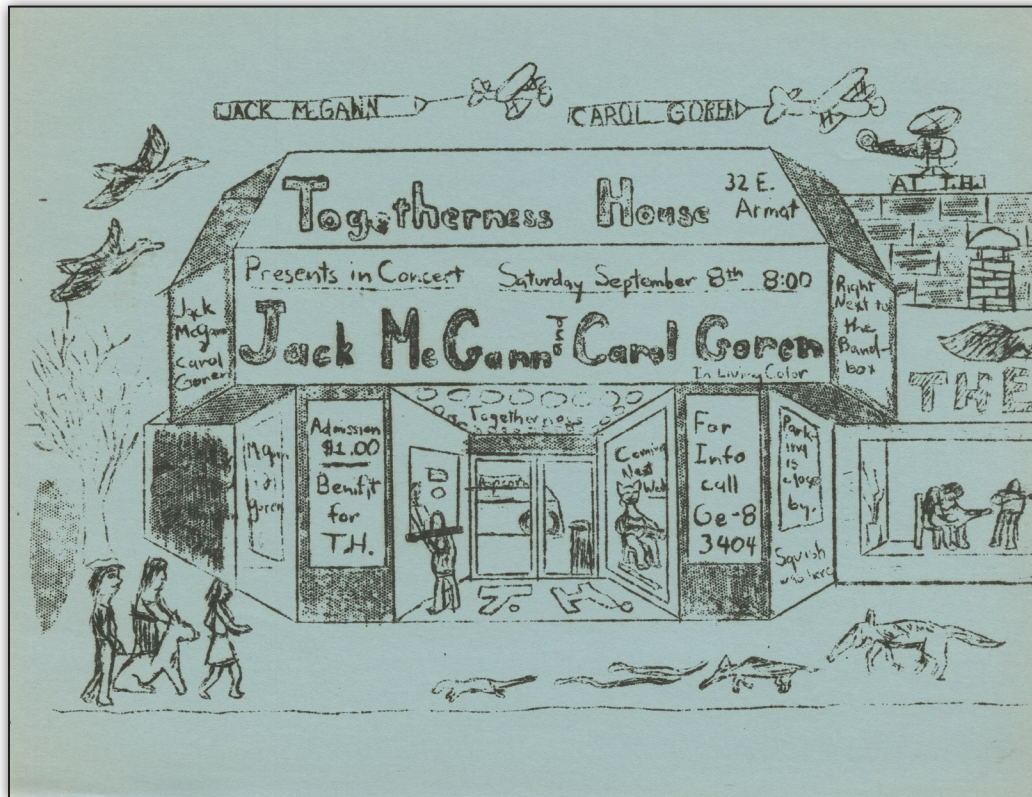 JACK McGANN
CAROL GOREN
AT T.H.
Togetherness House
32 E.
Armat
Presents in Concert Saturday September 8th 8:00
Jack McGann and Carol Goren
In Living Color
Jack
McGann
Carol
Goren
Right
Next to
the
Band-
box
THE
Togetherness
McGann
Goren
Admission
$1.00
Benifit
for
T.H.
Popcorn
Coming
Next
Week
For
Info
call
Ge-8
3404
Park-
ing
is
close
by.
Squish
T. H.